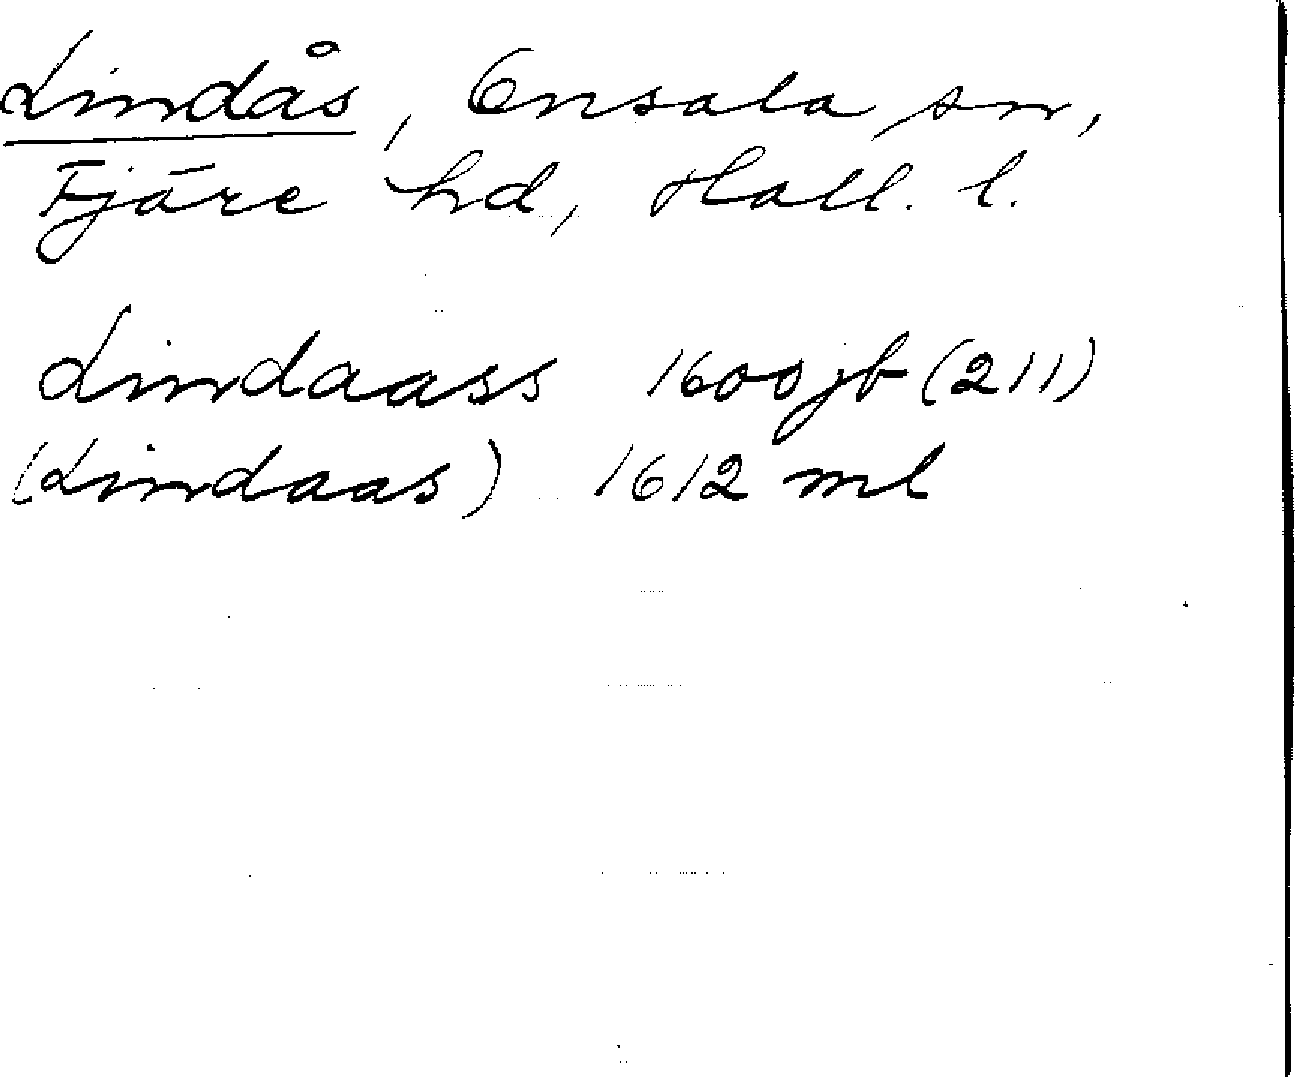 Lindås, Onsala sn,
Fjäre hd, Hall. l.
Lindaass 1600 jb (211)
(Lindaas) 1612 ml